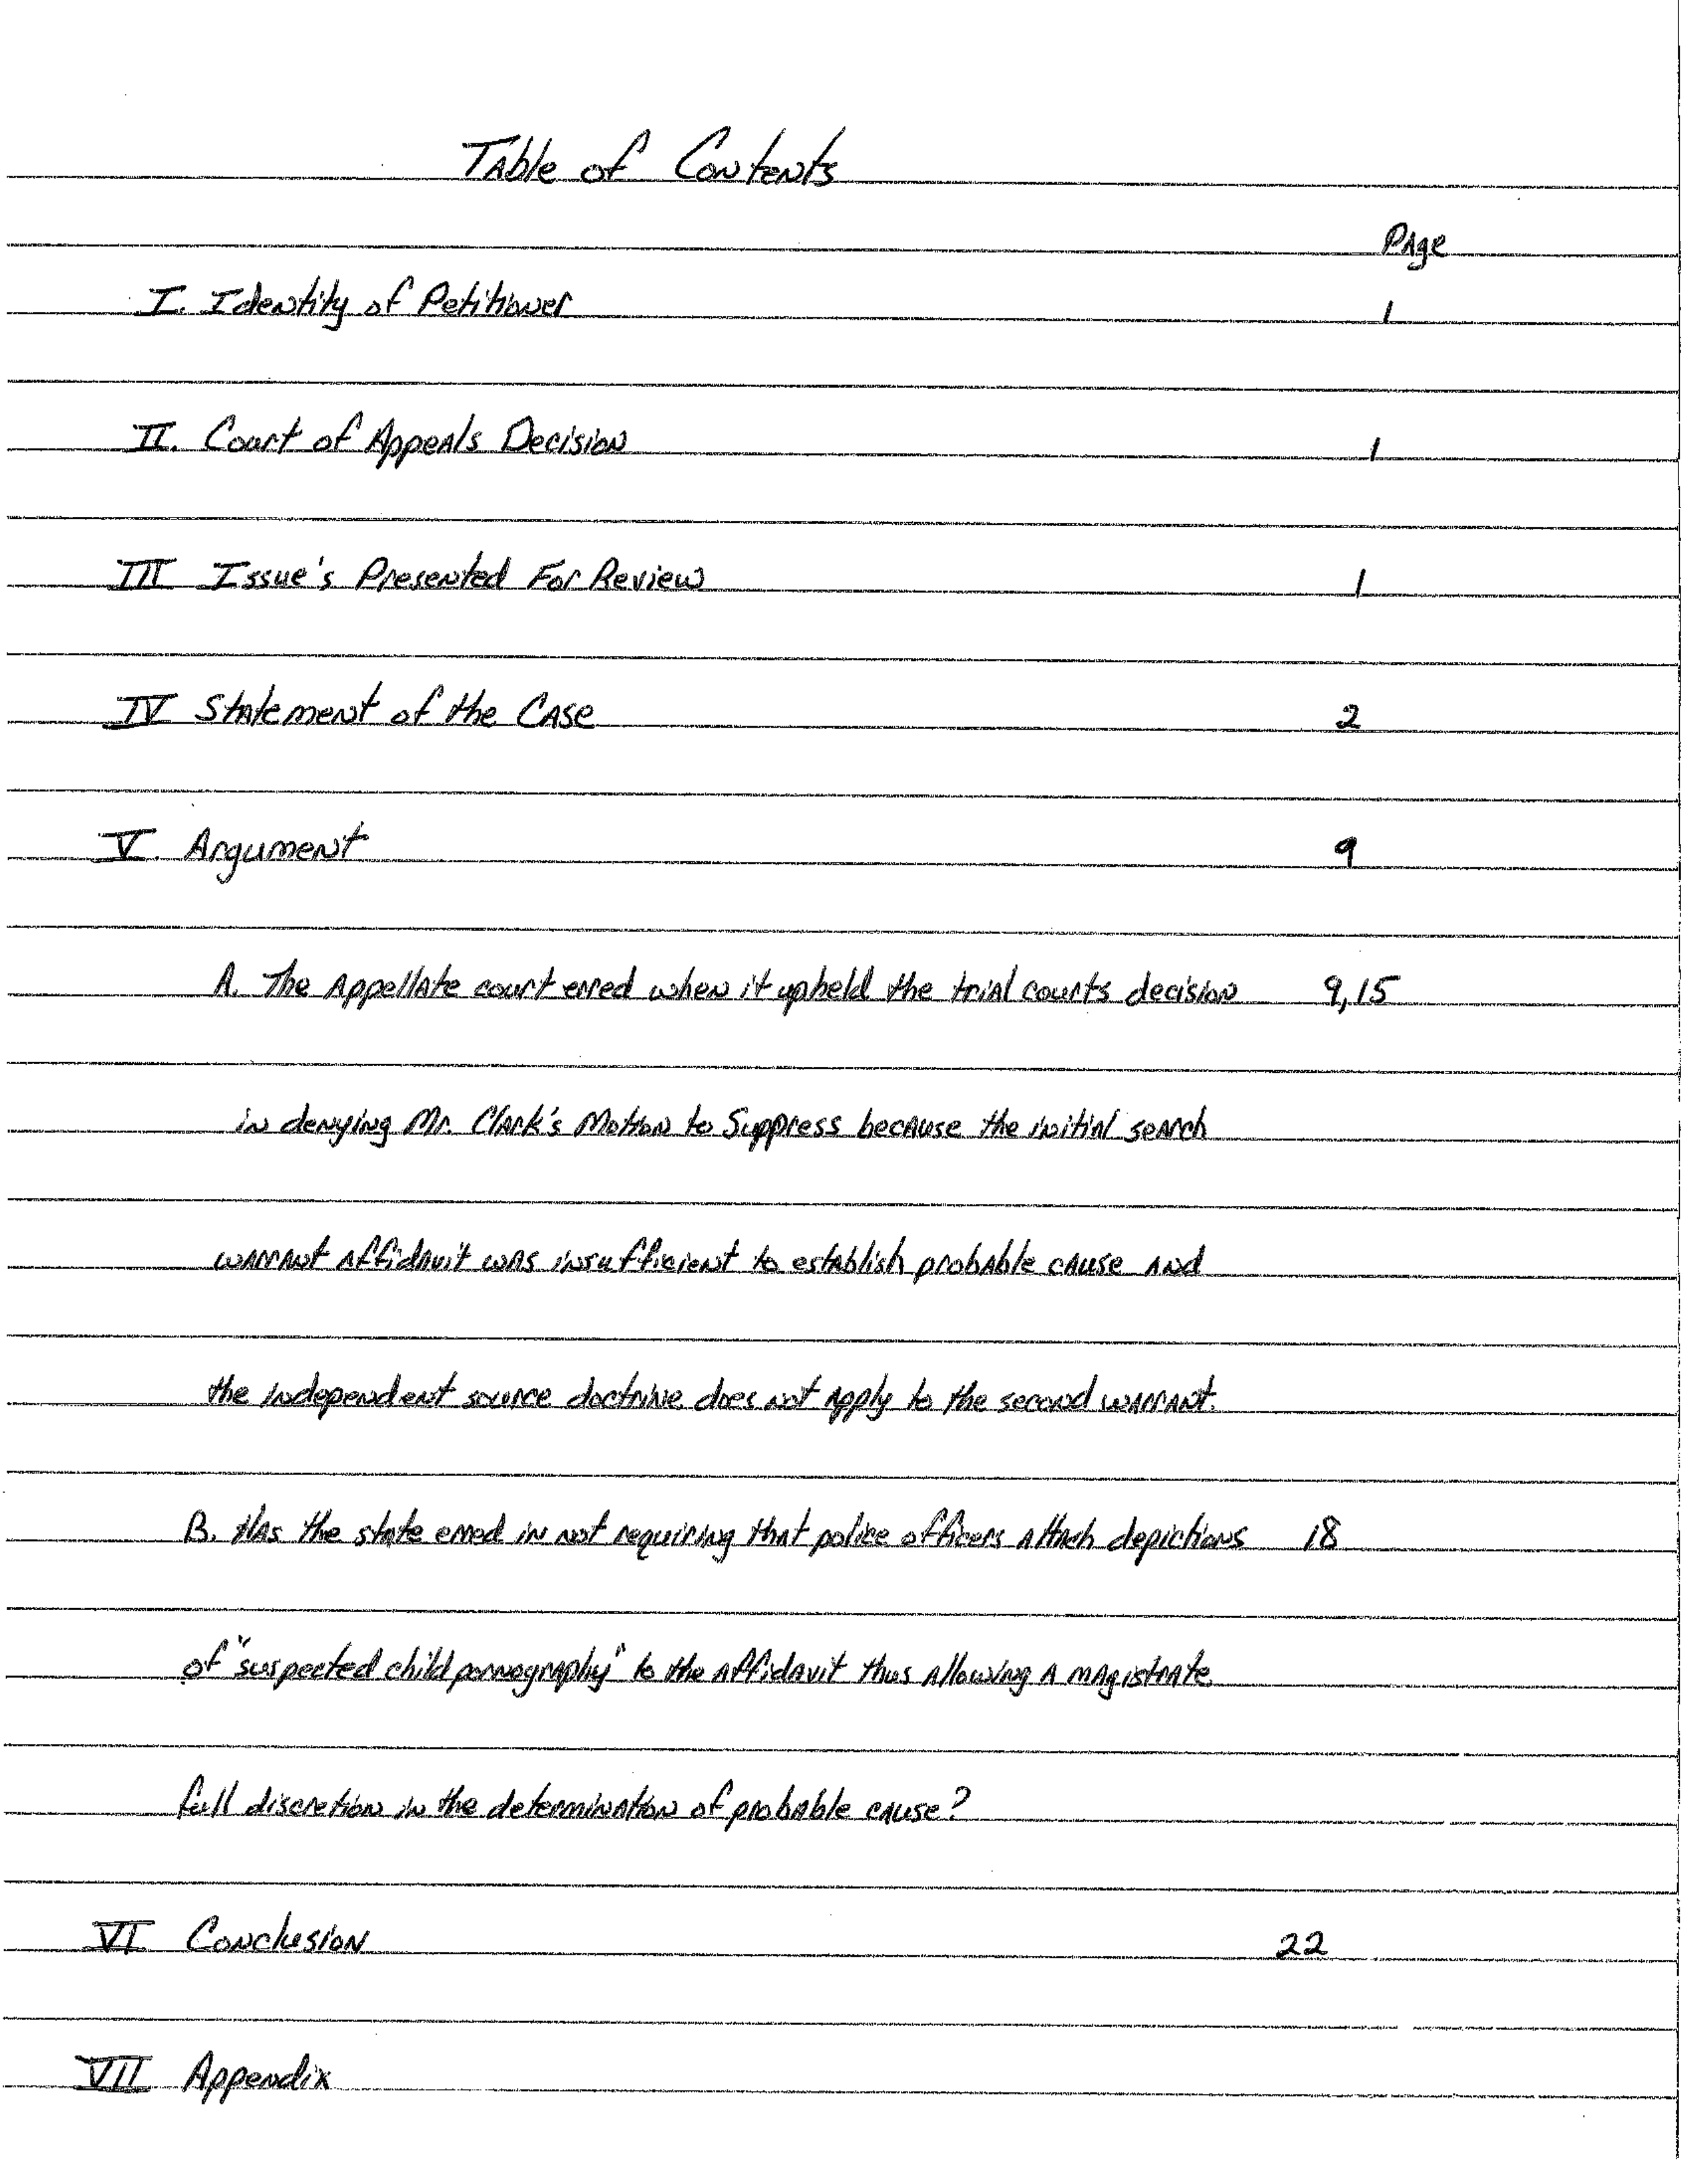 Table of Contents
Page
I. Identity of Petitioner 1
II. Court of Appeals Decision 1
III Issue's Presented For Review 1
IV Statement of the Case 2
V. Argument 9
A. The Appellate court erred when it upheld the trial courts decision 9,15
in denying Mr. Clark's Motion to Suppress because the initial search
warrant affidavit was insufficient to establish probable cause and
the independent source doctrine does not apply to the second warrant.
B. Has the state erred in not requiring that police officers attach depictions 18
of "suspected child pornography" to the affidavit thus allowing a magistrate
full discretion in the determination of probable cause?
VI Conclusion 22
VII Appendix